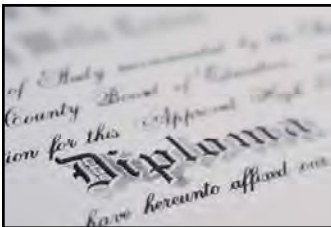 of Study recommended by the
County Board of Education
ion for this Approved High
Diploma
have hereunto affixed our